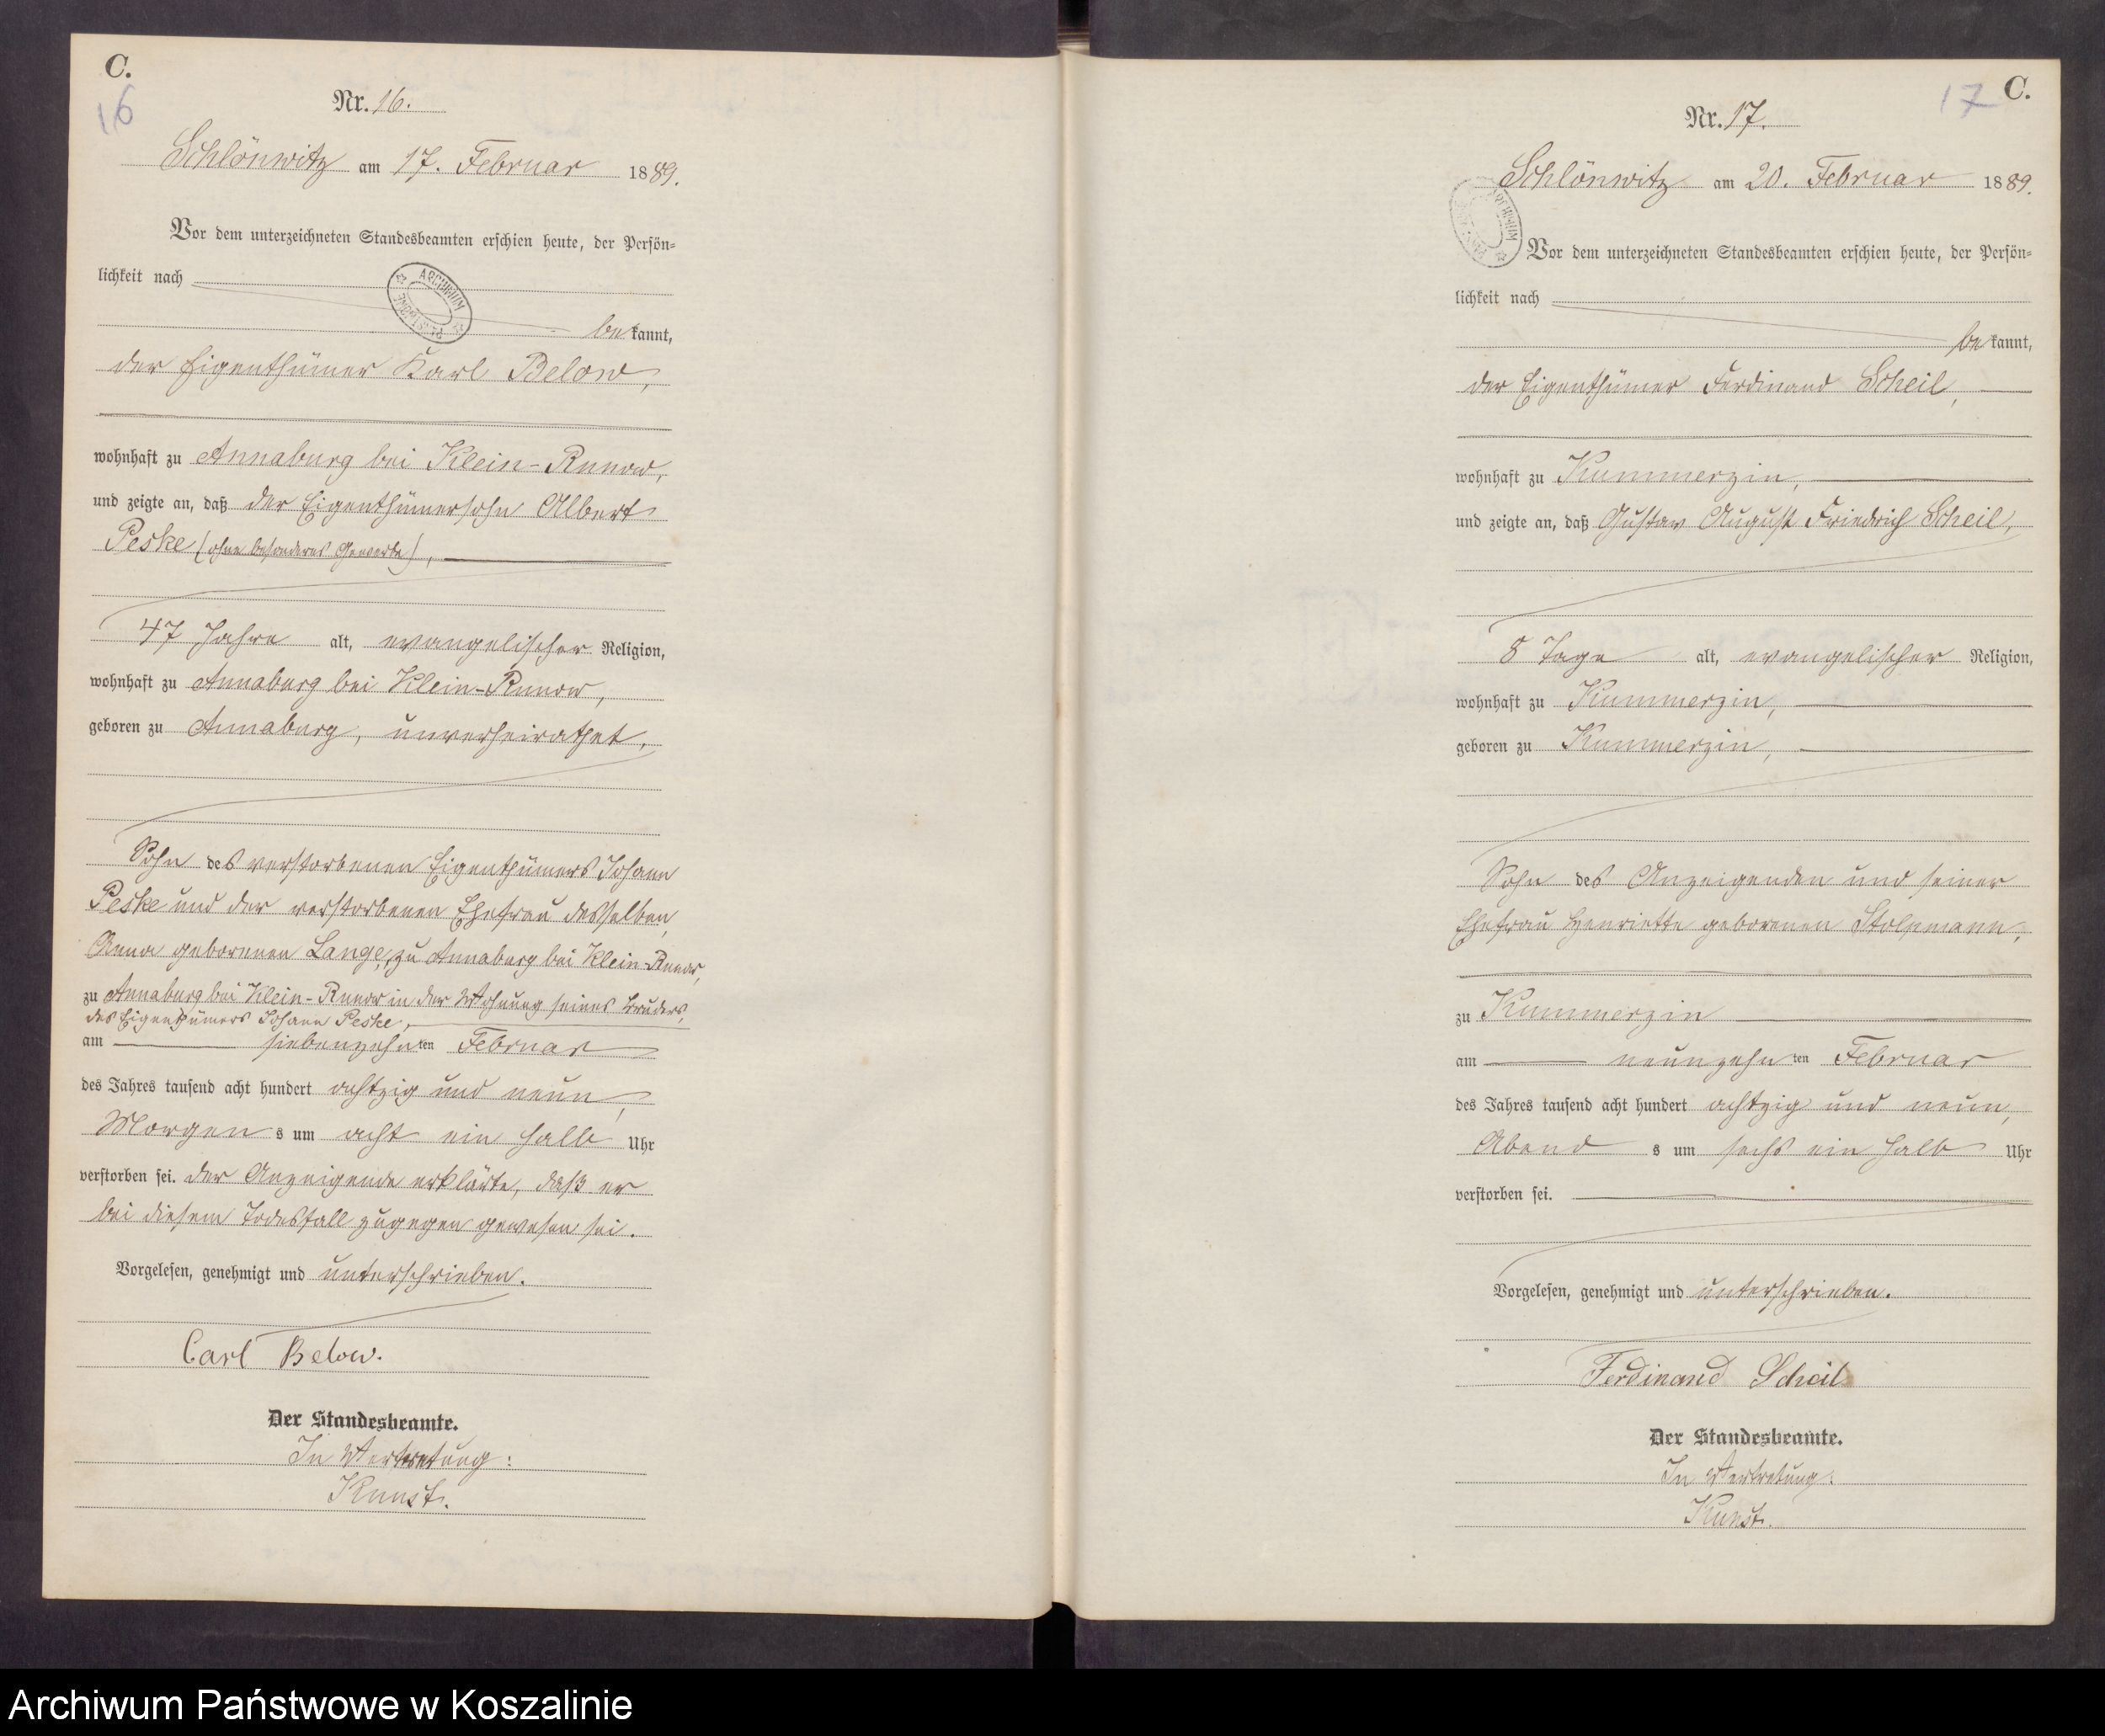 C.
16
Nr. 16.
Schlönwitz am 17. Februar 1889.
Vor dem unterzeichneten Standesbeamten erschien heute, der Persön=
lichkeit nach
ARCHIWUM
bekannt,
der Eigenthümer Karl Below,
wohnhaft zu Annaburg bei Klein-Runow,
und zeigte an, daß der Eigenthümersohn Albert
Peske (ohne besonderes Gewerbe),
47 Jahre alt, evangelischer Religion,
wohnhaft zu Annaburg bei Klein-Runow,
geboren zu Annaburg, unverheirathet,
Sohn des verstorbenen Eigenthümers Johann
Peske und der verstorbenen Ehefrau desselben,
Anna geborenen Lange, zu Annaburg bei Klein-Runow,
zu Annaburg bei Klein-Runow in der Wohnung seines Bruders,
des Eigenthümers Johann Peske,
am siebenzehnten Februar
des Jahres tausend acht hundert achtzig und neun,
Morgens um acht ein halb Uhr
verstorben sei. Der Anzeigende erklärte, daß er
bei diesem Todesfall zugegen gewesen sei.
Vorgelesen, genehmigt und unterschrieben.
Carl Below.
Der Standesbeamte.
In Vertretung:
Kunst.
17
C.
Nr. 17.
Schlönwitz am 20. Februar 1889.
Vor dem unterzeichneten Standesbeamten erschien heute, der Persön=
lichkeit nach
bekannt,
der Eigenthümer Ferdinand Scheil,
wohnhaft zu Kummerzin,
und zeigte an, daß Gustav August Friedrich Scheil,
8 Tage alt, evangelischer Religion,
wohnhaft zu Kummerzin,
geboren zu Kummerzin,
Sohn des Anzeigenden und seiner
Ehefrau Henriette geborenen Stolpmann,
zu Kummerzin
am neunzehnten Februar
des Jahres tausend acht hundert achtzig und neun,
Abends um sechs ein halb Uhr
verstorben sei.
Vorgelesen, genehmigt und unterschrieben.
Ferdinand Scheil
Der Standesbeamte.
In Vertretung:
Kunst.
Archiwum Państwowe w Koszalinie